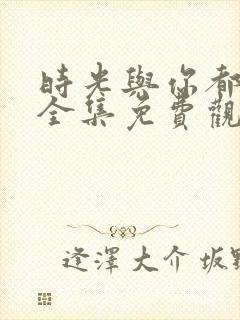 時光與你都
全集免費觀
逢澤大介 坂